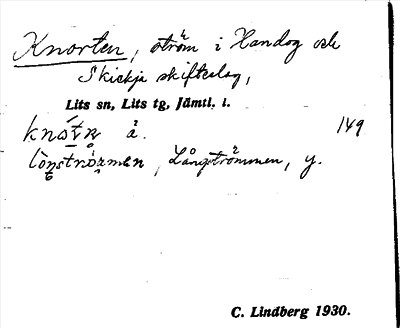 Knorten, ström i Handog och
Skickja skifteslag,
Lits sn, Lits tg, Jämtl. l.
å. 149
Långströmmen, y.
C. Lindberg 1930.